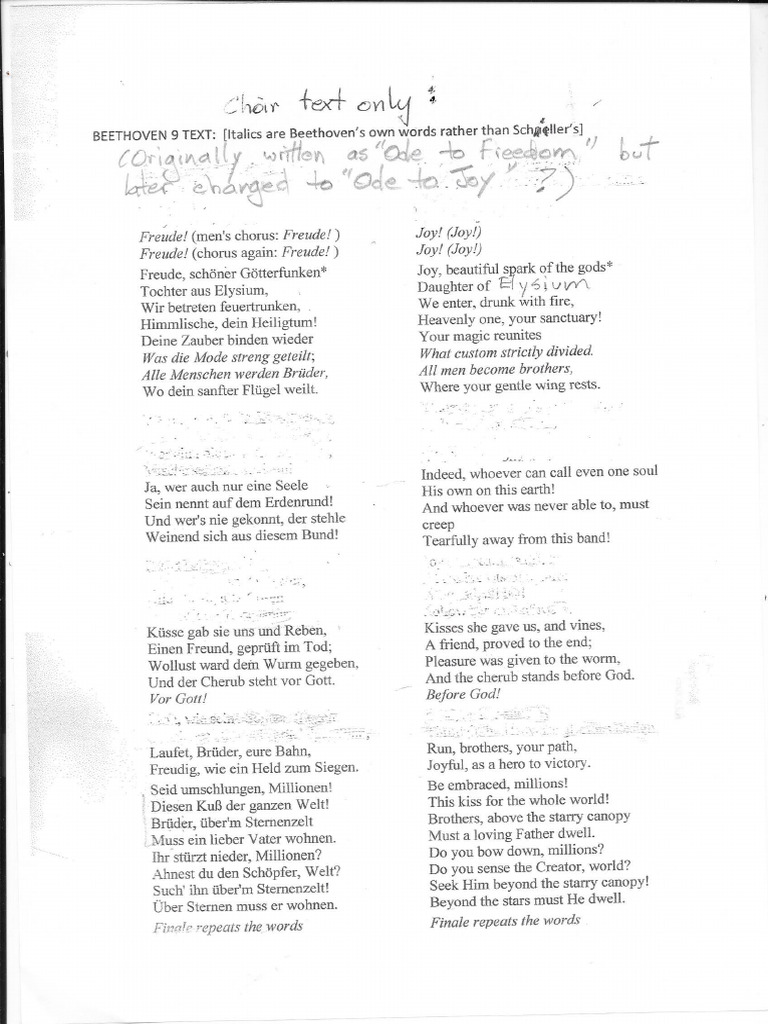 Choir text only :
BEETHOVEN 9 TEXT: [Italics are Beethoven's own words rather than Schiller's]
(Originally written as "Ode to Freedom" but
later changed to "Ode to Joy" ?)
Freude! (men's chorus: Freude! )
Freude! (chorus again: Freude! )
Freude, schöner Götterfunken*
Tochter aus Elysium,
Wir betreten feuertrunken,
Himmlische, dein Heiligtum!
Deine Zauber binden wieder
Was die Mode streng geteilt;
Alle Menschen werden Brüder,
Wo dein sanfter Flügel weilt.
Ja, wer auch nur eine Seele
Sein nennt auf dem Erdenrund!
Und wer's nie gekonnt, der stehle
Weinend sich aus diesem Bund!
Küsse gab sie uns und Reben,
Einen Freund, geprüft im Tod;
Wollust ward dem Wurm gegeben,
Und der Cherub steht vor Gott.
Vor Gott!
Laufet, Brüder, eure Bahn,
Freudig, wie ein Held zum Siegen.
Seid umschlungen, Millionen!
Diesen Kuß der ganzen Welt!
Brüder, über'm Sternenzelt
Muss ein lieber Vater wohnen.
Ihr stürzt nieder, Millionen?
Ahnest du den Schöpfer, Welt?
Such' ihn über'm Sternenzelt!
Über Sternen muss er wohnen.
Finale repeats the words
Joy! (Joy!)
Joy! (Joy!)
Joy, beautiful spark of the gods*
Daughter of Elysium
We enter, drunk with fire,
Heavenly one, your sanctuary!
Your magic reunites
What custom strictly divided.
All men become brothers,
Where your gentle wing rests.
Indeed, whoever can call even one soul
His own on this earth!
And whoever was never able to, must
creep
Tearfully away from this band!
Kisses she gave us, and vines,
A friend, proved to the end;
Pleasure was given to the worm,
And the cherub stands before God.
Before God!
Run, brothers, your path,
Joyful, as a hero to victory.
Be embraced, millions!
This kiss for the whole world!
Brothers, above the starry canopy
Must a loving Father dwell.
Do you bow down, millions?
Do you sense the Creator, world?
Seek Him beyond the starry canopy!
Beyond the stars must He dwell.
Finale repeats the words